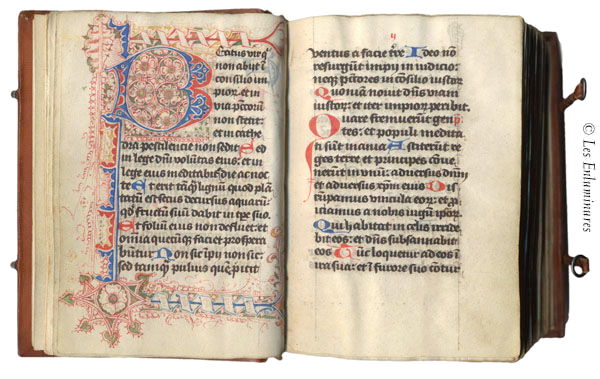 Beatus virq
non abijt ĩ
consilio im
pior: et in
via pcc̄or̄
non stetit:
et in cathe
dra pestilencie non sedit Sed
in lege dn̄i voluntas eius: et in
lege eius meditabit̃ die ac noc
te Et erit tamq̃ lignũ quod plã
tatũ est secus decursus aquarũ:
qd̃ fructũ suũ dabit in tpe suo
Et foliũ eius non defluet: et
omnia quecũq̃ faciet prospera
buntur Non sic ĩpij non sic:
sed tamq̃ puluis quẽ ꝓicit
ij
ventus a facie tr̃e Ideo nõ
resurgũt impij in iudicio:
neq̃ pc̃tores in cõsilio iustor
Quoniã nouit dñs viam
iustor: et iter impior peribit
Quare fremuerũt gen
tes: et populi medita
ti sũt inania Astiterũt re
ges terre et principes cõue
nerũt in vnũ: aduersus dñm
et aduersus xp̃m eius Dis
rũpamus vincula eor: et ꝓ
iciamus a nobis iugũ ip̃or
Qui habitat in celis irride
bit eos: et dñs subsannabit
eos Tũc loquetur ad eos ĩ
ira sua: et ĩ furore suo cõtur
© Les Enluminures